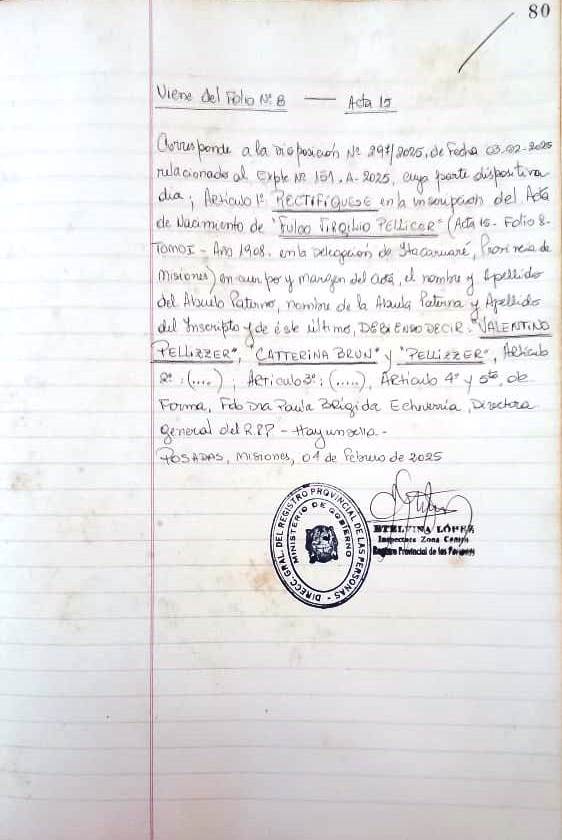 80
Viene del Folio Nº 8 — Acta 15
Corresponde a la Disposición Nº 297/2025, de Fecha 03-02-2025
relacionado al Expte Nº 151-A-2025, cuya parte dispositiva
dia; Artículo 1º RECTIFIQUESE en la inscripción del Acta
de Nacimiento de "FULGO VIRGILIO PELLICER" (Acta 15- Folio 8-
TOMO I - Año 1908. en la Delegación de Itacaruaré, Provincia de
Misiones) en cuerpo y margen del acta, el nombre y Apellido
del Abuelo Paterno, nombre de la Abuela Paterna y Apellido
del Inscripto y de éste último, DEBIENDO DECIR: "VALENTINO
PELLIZZER", "CATTERINA BRUN" y "PELLIZZER", Artículo
2º: (....); Artículo 3º: (.....), Artículo 4º y 5to, de
Forma, Fdo Dra Paula Brígida Echeverria, Directora
general del R.P.P - Hay un sello -
POSADAS, Misiones, 04 de Febrero de 2025
DIRECC. GRAL. DEL REGISTRO PROVINCIAL DE LAS PERSONAS
MINISTERIO DE GOBIERNO
ETELVINA LÓPEZ
Inspectora Zona Centro
Registro Provincial de las Personas